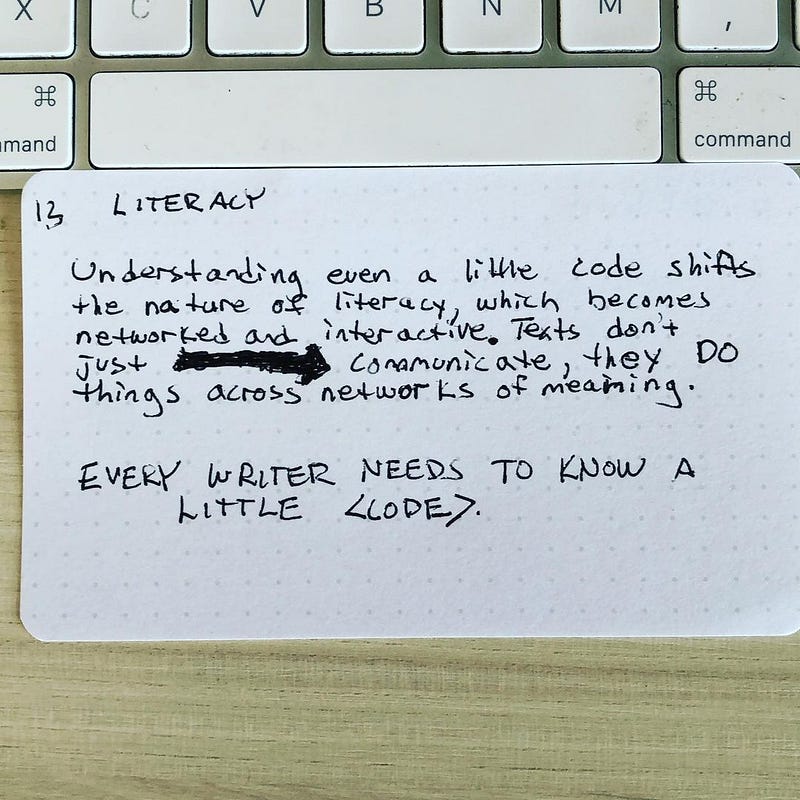 X C V B N M ,
⌘ ⌘
mmand command
13 LITERACY
Understanding even a little code shifts
the nature of literacy, which becomes
networked and interactive. Texts don't
just communicate, they DO
things across networks of meaning.
EVERY WRITER NEEDS TO KNOW A
LITTLE <CODE>.